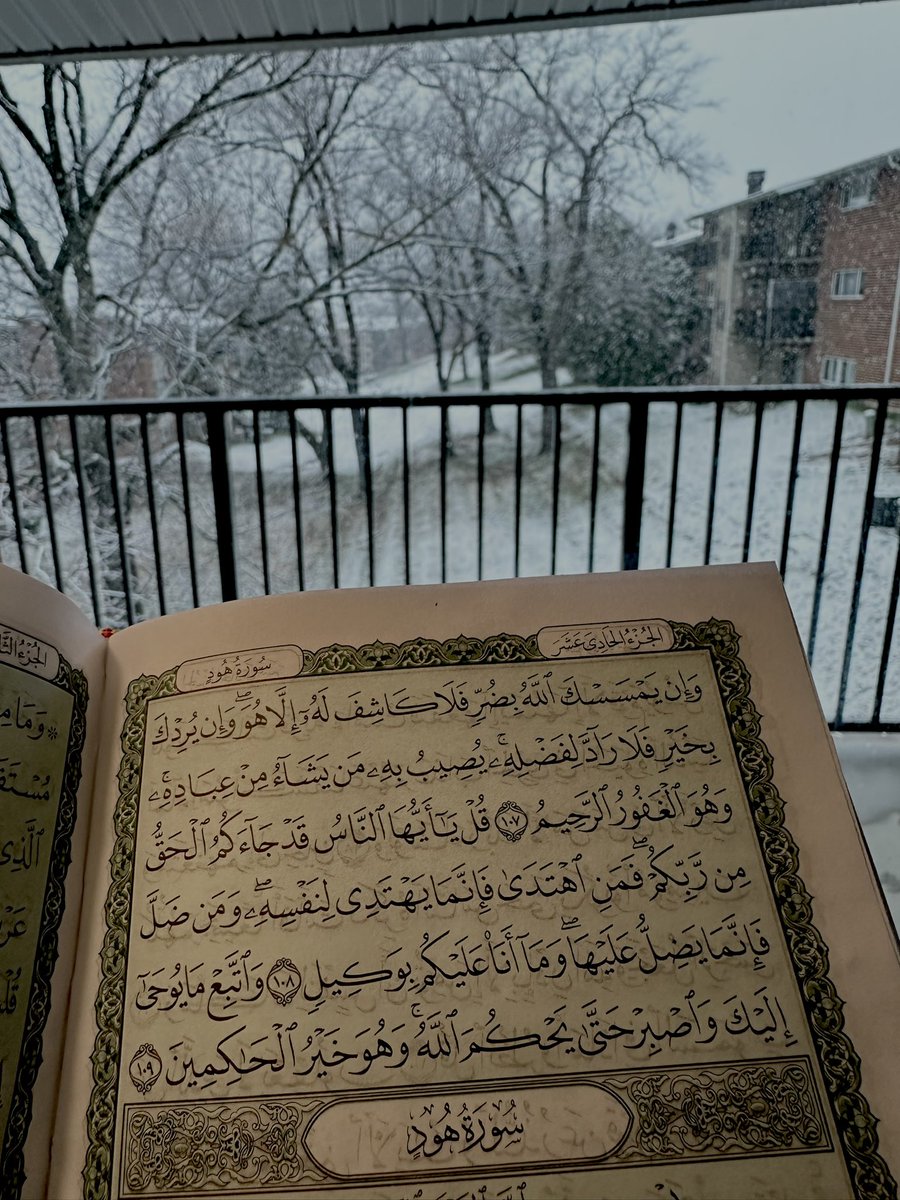 الجُزْءُ الحَادِى عَشَرَ
سُورَةُ هُودٍ
وَإِن يَمْسَسْكَ ٱللَّهُ بِضُرٍّ فَلَا كَاشِفَ لَهُۥٓ إِلَّا هُوَۖ وَإِن يُرِدْكَ
بِخَيْرٍ فَلَا رَآدَّ لِفَضْلِهِۦۚ يُصِيبُ بِهِۦ مَن يَشَآءُ مِنْ عِبَادِهِۦۚ
وَهُوَ ٱلْغَفُورُ ٱلرَّحِيمُ ١٠٧ قُلْ يَٰٓأَيُّهَا ٱلنَّاسُ قَدْ جَآءَكُمُ ٱلْحَقُّ
مِن رَّبِّكُمْۖ فَمَنِ ٱهْتَدَىٰ فَإِنَّمَا يَهْتَدِى لِنَفْسِهِۦۖ وَمَن ضَلَّ
فَإِنَّمَا يَضِلُّ عَلَيْهَاۖ وَمَآ أَنَا۠ عَلَيْكُم بِوَكِيلٍ ١٠٨ وَٱتَّبِعْ مَا يُوحَىٰٓ
إِلَيْكَ وَٱصْبِرْ حَتَّىٰ يَحْكُمَ ٱللَّهُۚ وَهُوَ خَيْرُ ٱلْحَٰكِمِينَ ١٠٩
سُورَةُ هُودٍ
وَمَا مِ
ٱلَّذِى